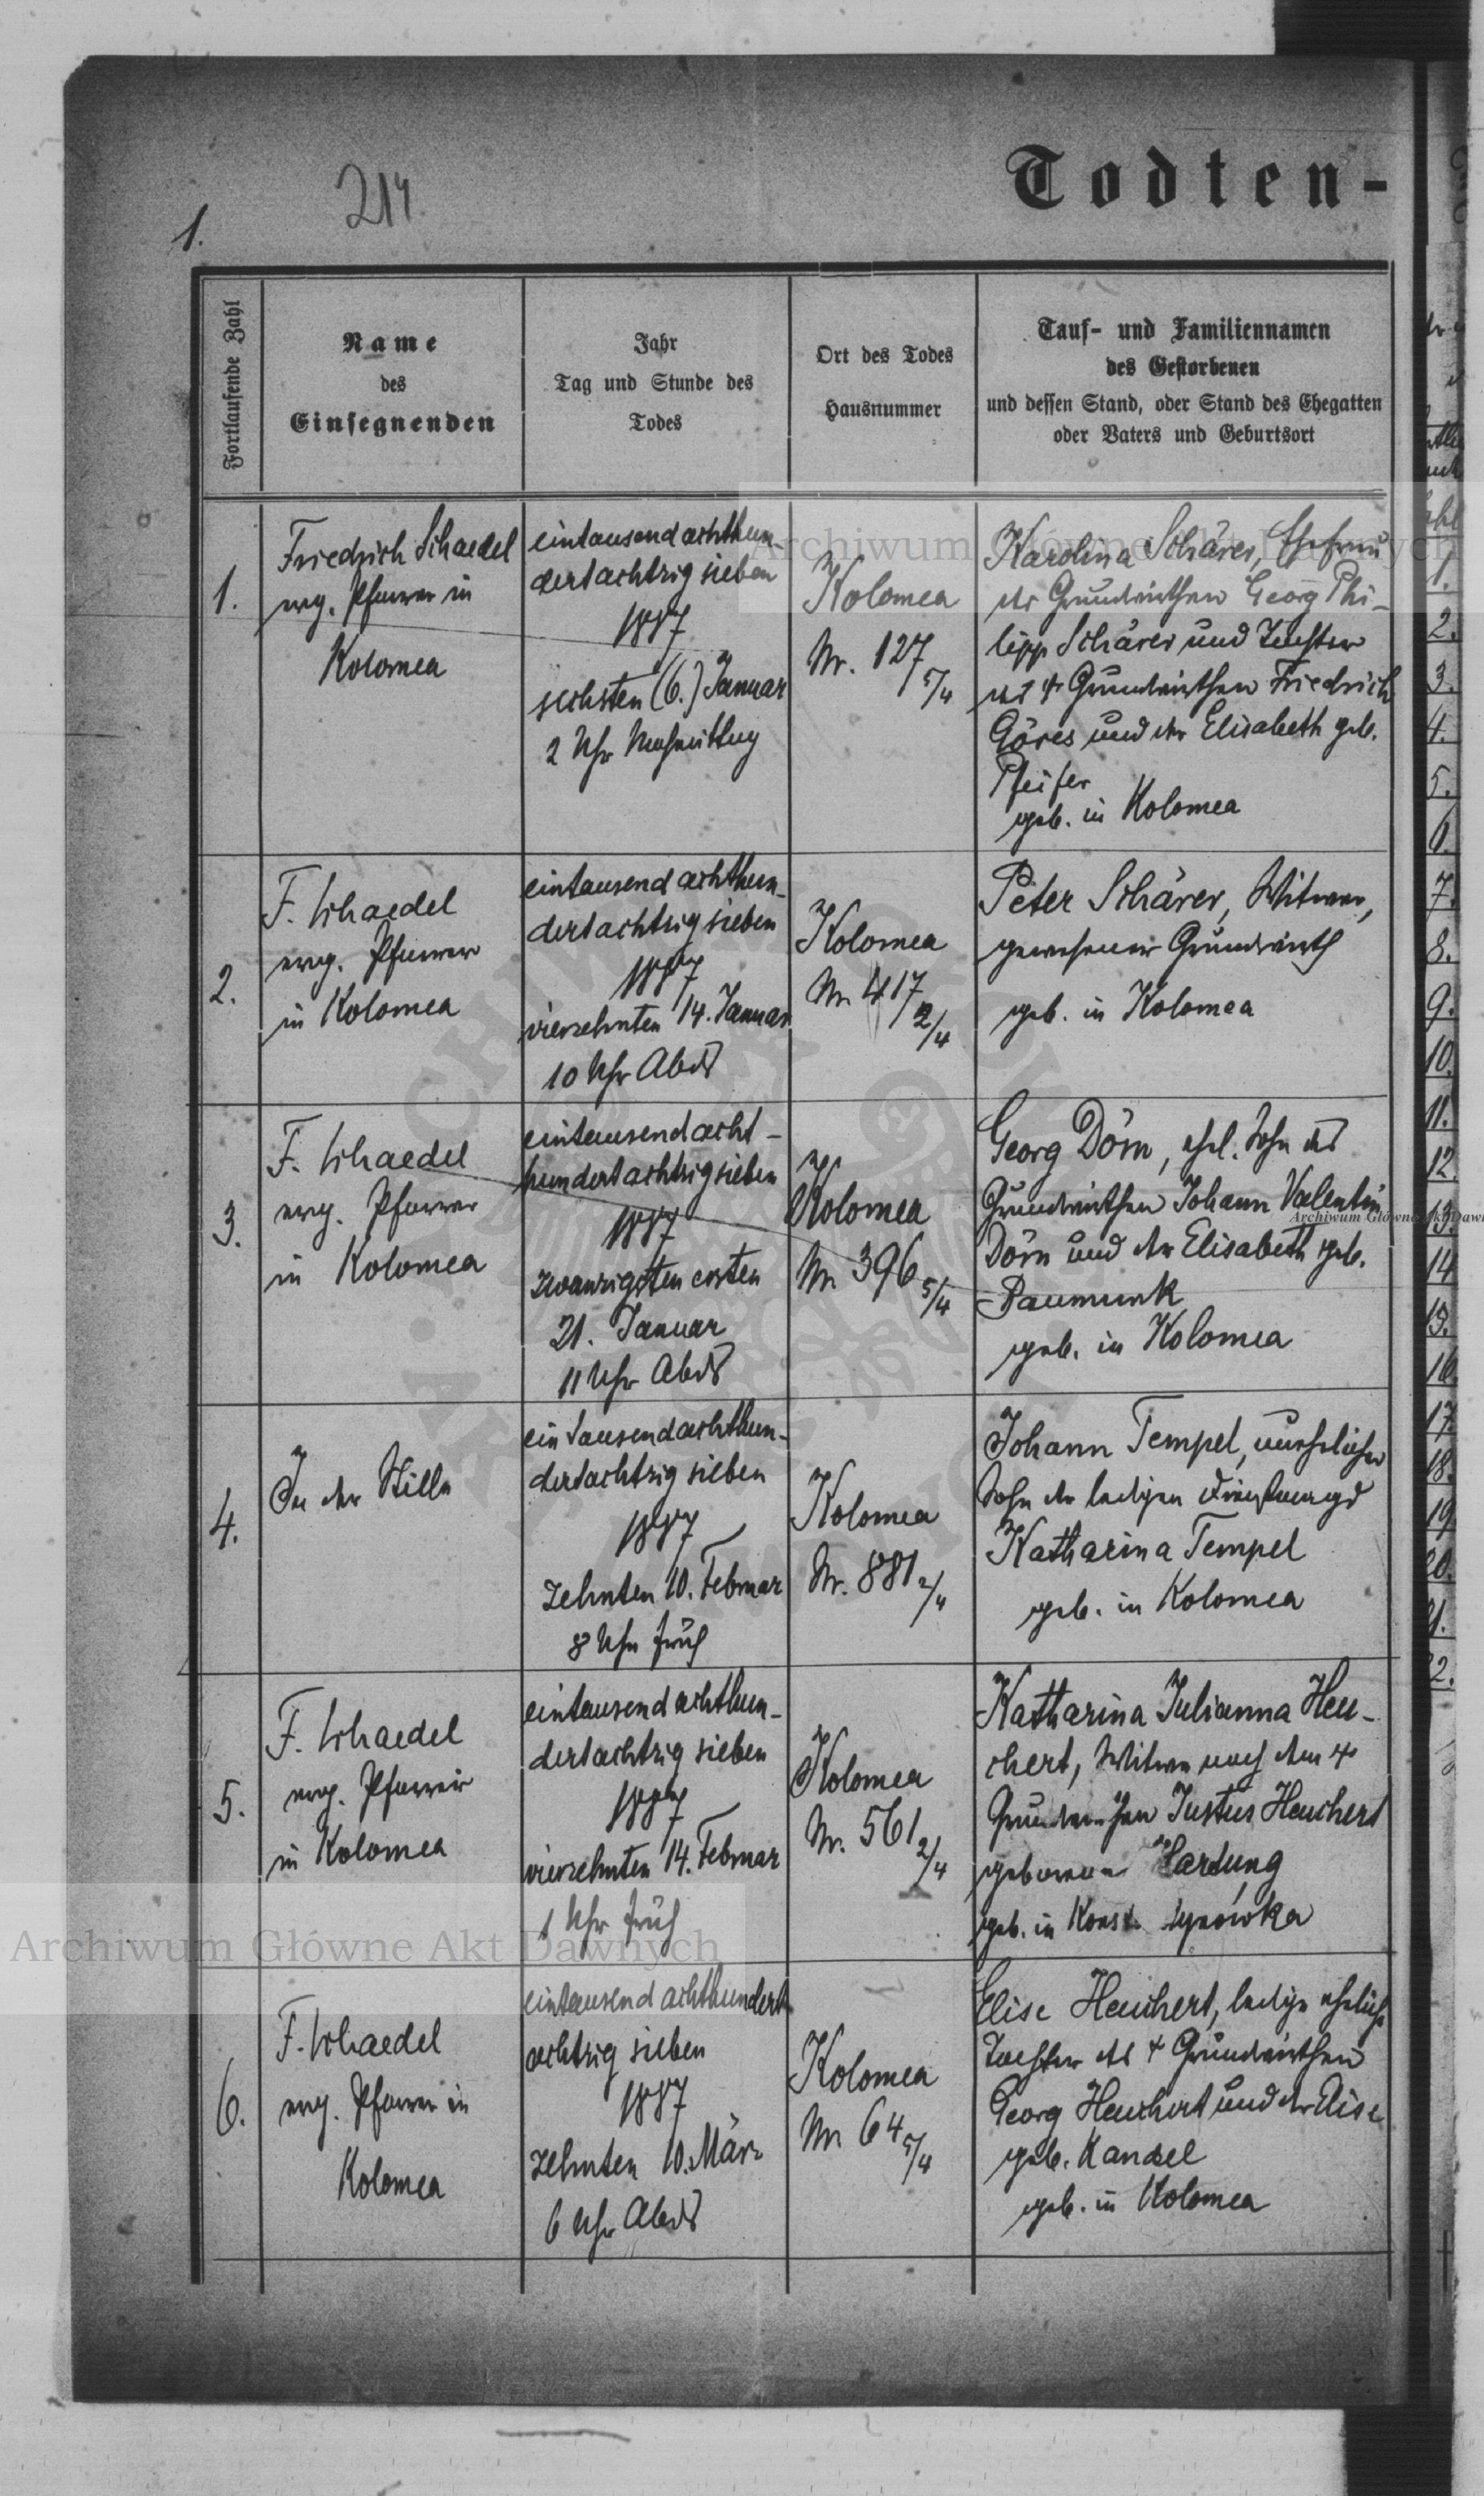 1.
214.
Todten-
Fortlaufende Zahl
Name
des
Einsegnenden
Jahr
Tag und Stunde des
Todes
Ort des Todes
Hausnummer
Tauf- und Familiennamen
des Gestorbenen
und dessen Stand, oder Stand des Ehegatten
oder Vaters und Geburtsort
1.
Friedrich Schaedel
evg. Pfarrer in
Kolomea
eintausend achthun-
dertachtzig sieben
1887
sechsten (6.) Januar
2 Uhr Nachmittag
Kolomea
Nr. 127
5/4
Karolina Schärer, Ehefrau
des Grundwirthen Georg Phi-
lipp Schärer und Tochter
des + Grundwirthen Friedrich
Göres und der Elisabeth geb.
Pfeifer
geb. in Kolomea
2.
F. Schaedel
evg. Pfarrer
in Kolomea
eintausend achthun-
dertachtzig sieben
1887
vierzehnten 14. Januar
10 Uhr Abds
Kolomea
Nr 417
2/4
Peter Schärer, Witwer,
gewesener Grundwirth
geb. in Kolomea
3.
F. Schaedel
evg. Pfarrer
in Kolomea
eintausendacht-
hundertachtzigsieben
1887
zwanzigsten ersten
21. Januar
11 Uhr Abds
Kolomea
Nr 396 5/4
Georg Dörn, ehel. Sohn des
Grundwirthen Johann Valentin
Dörn und der Elisabeth geb.
Paumunk
geb. in Kolomea
4.
In der Stille
ein tausendachthun-
dertachtzig sieben
1887
zehnten 10. Februar
8 Uhr früh
Kolomea
Nr. 881 2/4
Johann Tempel, unehelicher
Sohn der ledigen Dienstmagd
Katharina Tempel
geb. in Kolomea
5.
F. Schaedel
evg. Pfarrer
in Kolomea
eintausend achthun-
dertachtzig sieben
1887
vierzehnten 14. Februar
1 Uhr früh
Kolomea
Nr. 561 2/4
Katharina Julianna Heu-
chert, Witwe nach dem +
Grundwirthen Justus Heuchert
geborene Hardung
geb. in
6.
F. Schaedel
evg. Pfarrer in
Kolomea
eintausend achthundert
achtzig sieben
1887
zehnten 10. März
6 Uhr Abds
Kolomea
Nr 64 5/4
Elise Heuchert, ledige eheliche
Tochter des + Grundwirthen
Georg Heuchert und der Elise
geb. Kandel
geb. in Kolomea
Archiwum Główne Akt Dawnych
Archiwum Główne Akt Dawnych
1.
2.
3.
4.
5.
6.
7.
8.
9.
10.
11.
12.
13.
14
15.
16.
17.
18.
19
20.
21.
22.